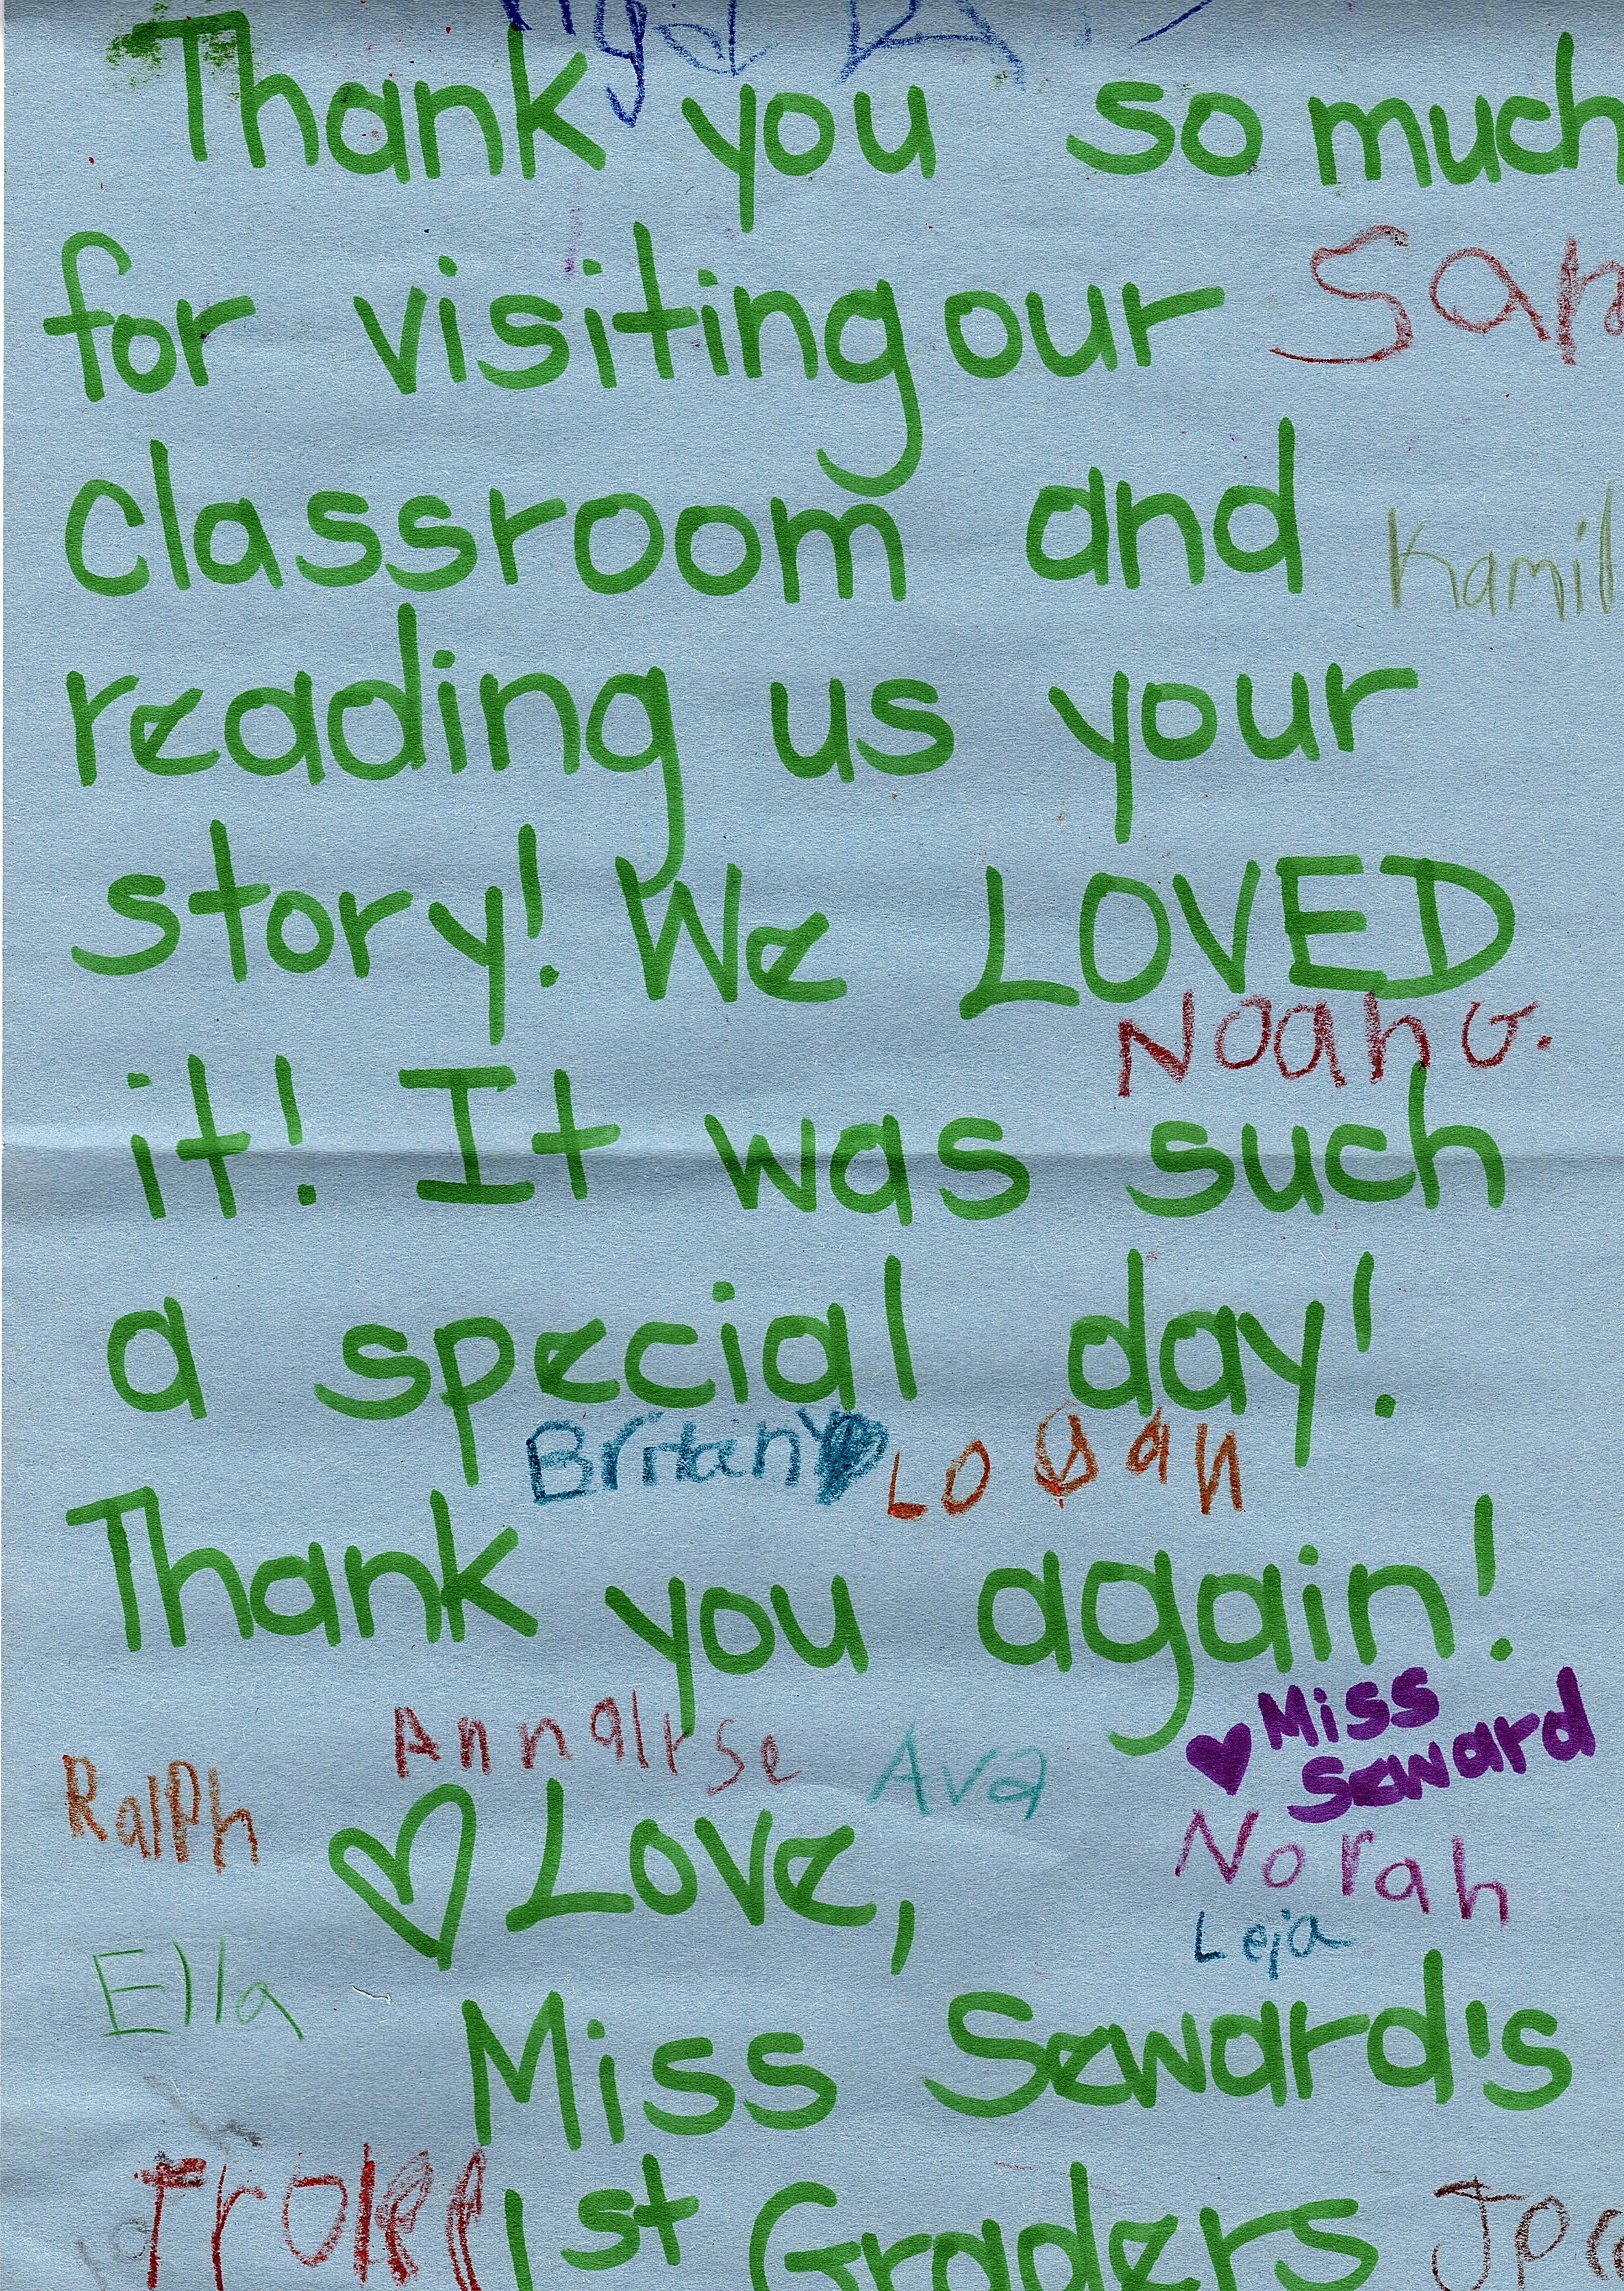 Thank you so much
for visiting our
classroom and
Kamil
reading us your
story! We LOVED
Noah G.
it! It was such
a special day!
Britany Logan
Thank you again!
Annalise Ava
♥ Miss
Seward
Ralph
Norah
♡ Love,
Leja
Ella
Miss Seward's
1st Graders